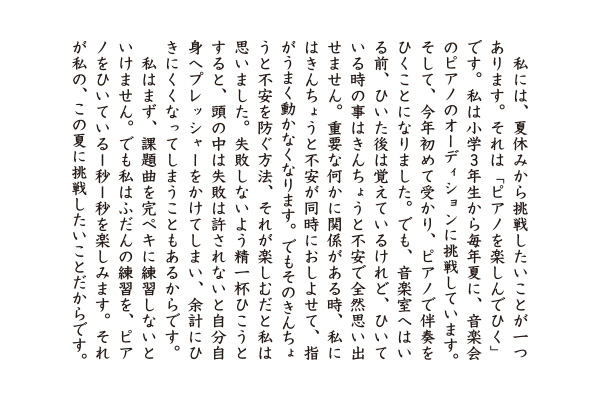 私には、夏休みから挑戦したいことが一つ
あります。それは「ピアノを楽しんでひく」
です。私は小学３年生から毎年夏に、音楽会
のピアノのオーディションに挑戦しています。
そして、今年初めて受かり、ピアノで伴奏を
ひくことになりました。でも、音楽室へはい
る前、ひいた後は覚えているけれど、ひいて
いる時の事はきんちょうと不安で全然思い出
せません。重要な何かに関係がある時、私に
はきんちょうと不安が同時におしよせて、指
がうまく動かなくなります。でもそのきんちょ
うと不安を防ぐ方法、それが楽しむだと私は
思いました。失敗しないよう精一杯ひこうと
すると、頭の中は失敗は許されないと自分自
身へプレッシャーをかけてしまい、余計にひ
きにくくなってしまうこともあるからです。
　私はまず、課題曲を完ペキに練習しないと
いけません。でも私はふだんの練習を、ピア
ノをひいているー秒ー秒を楽しみます。それ
が私の、この夏に挑戦したいことだからです。